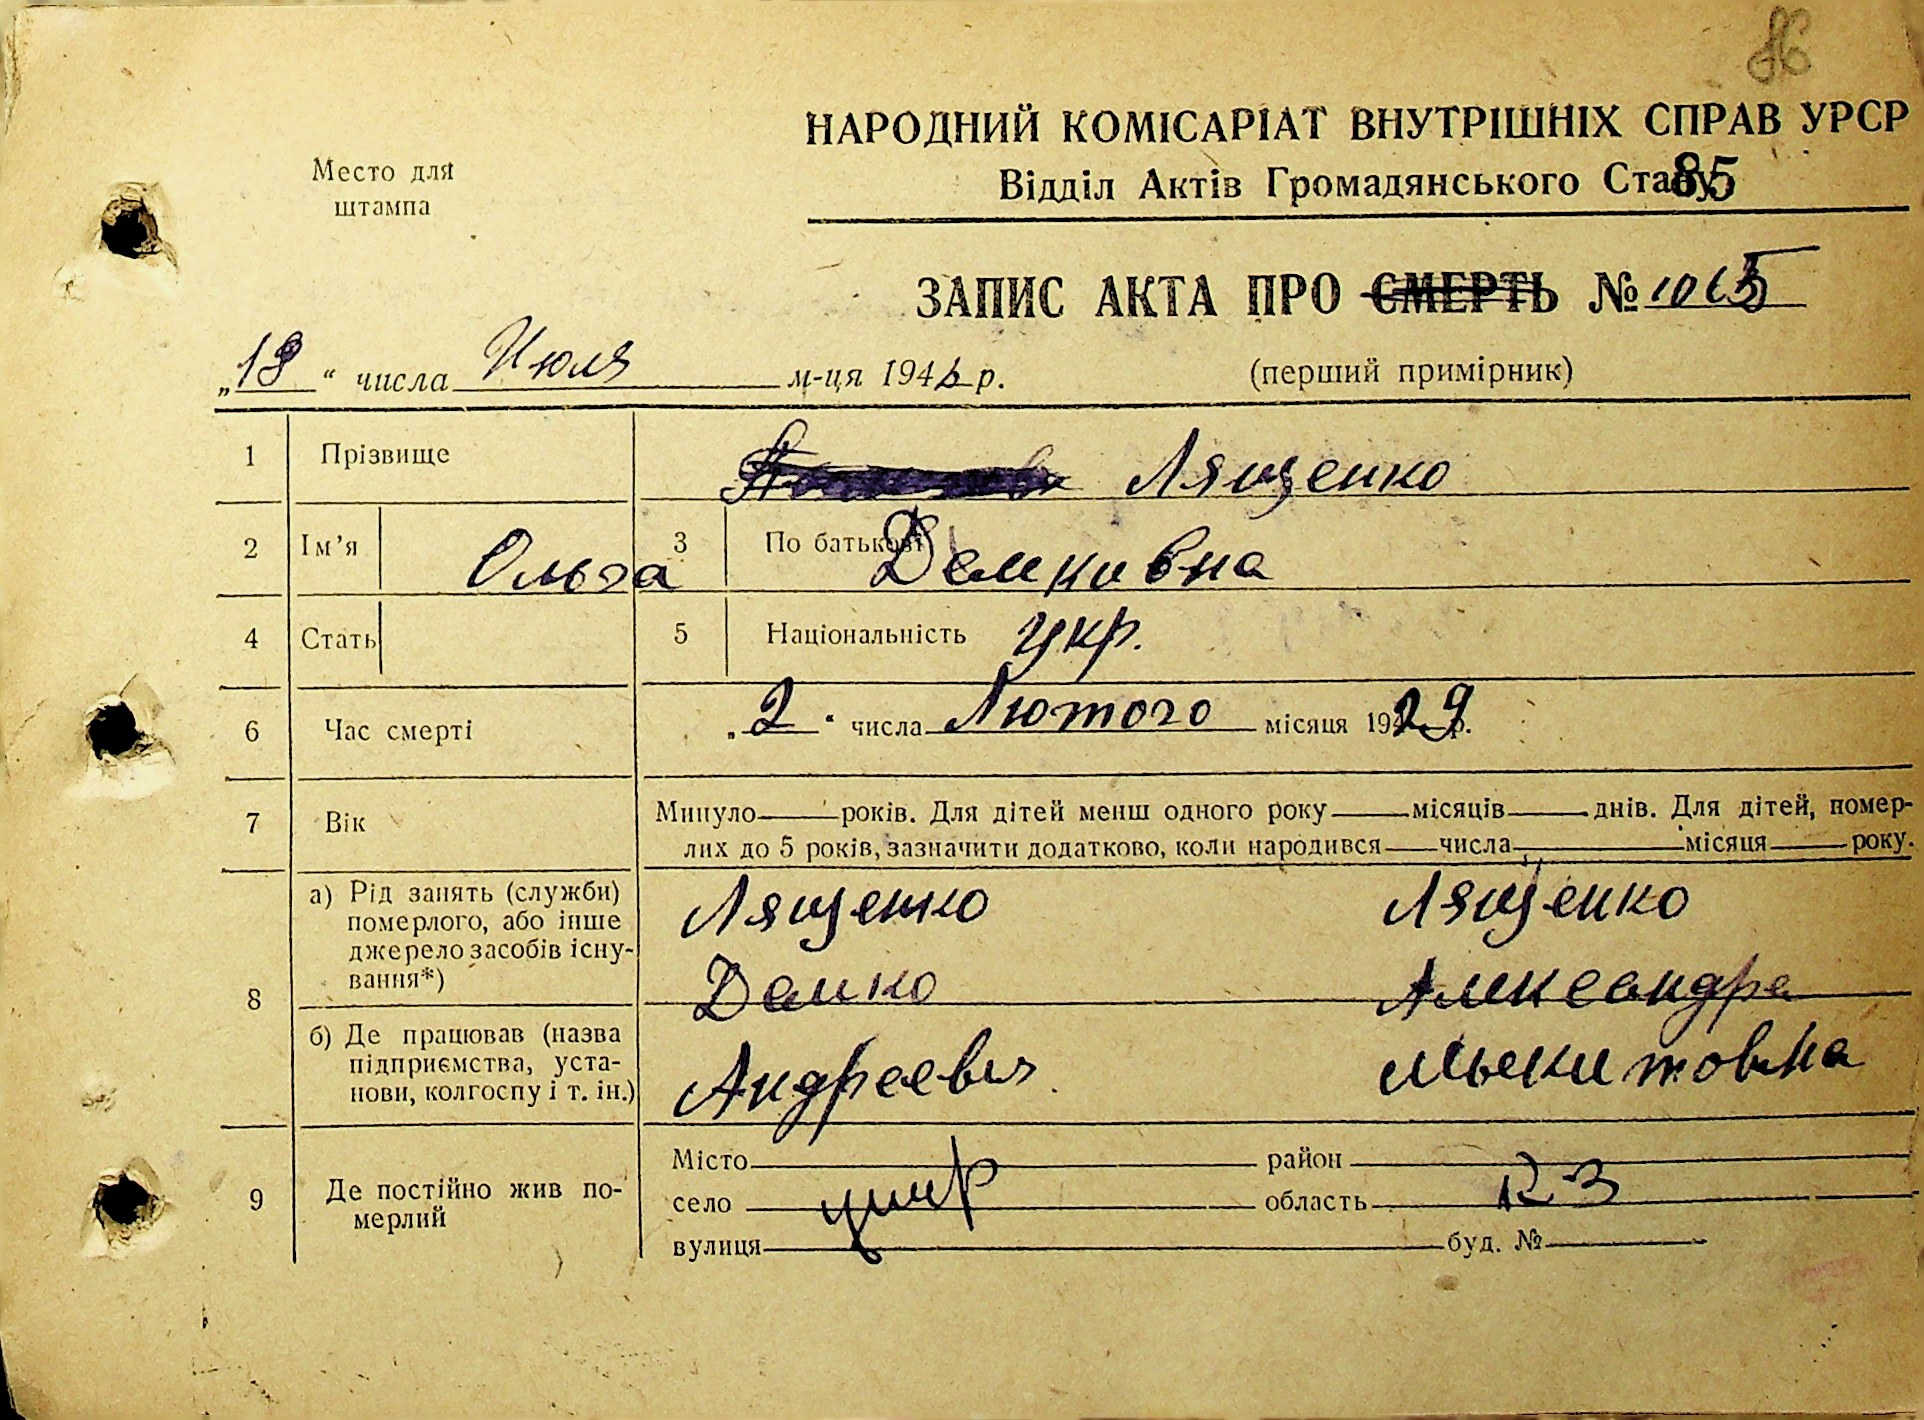 НАРОДНИЙ КОМІСАРІАТ ВНУТРІШНІХ СПРАВ УРСР
Место для штампа
Відділ Актів Громадянського Стану
85
ЗАПИС АКТА ПРО СМЕРТЬ № 1065
„18“ числа Июля м-ця 194 р.
(перший примірник)
1 Прізвище Лященко
2 Ім’я Ольга 3 По батькові Демковна
4 Стать 5 Національність укр.
6 Час смерті „2“ числа Лютого місяця 1929 р.
7 Вік Минуло років. Для дітей менш одного року місяців днів. Для дітей, помер-
лих до 5 років, зазначити додатково, коли народився числа місяця року.
8 а) Рід занять (служби)
померлого, або інше
джерело засобів існу-
вання*)
Лященко Лященко
Демко Александра
б) Де працював (назва
підприємства, уста-
нови, колгоспу і т. ін.)
Андреевич Мыкитовна
9 Де постійно жив по-
мерлий
Місто район
село область
вулиця буд. №